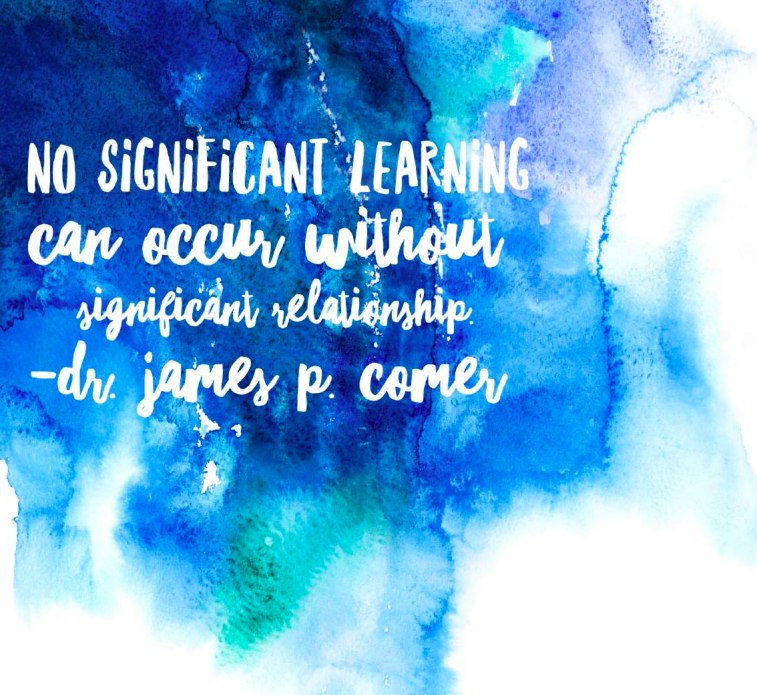 NO SiGNiFiCANT LEARNiNG
can occur without
significant relationship.
-dr. james p. comer